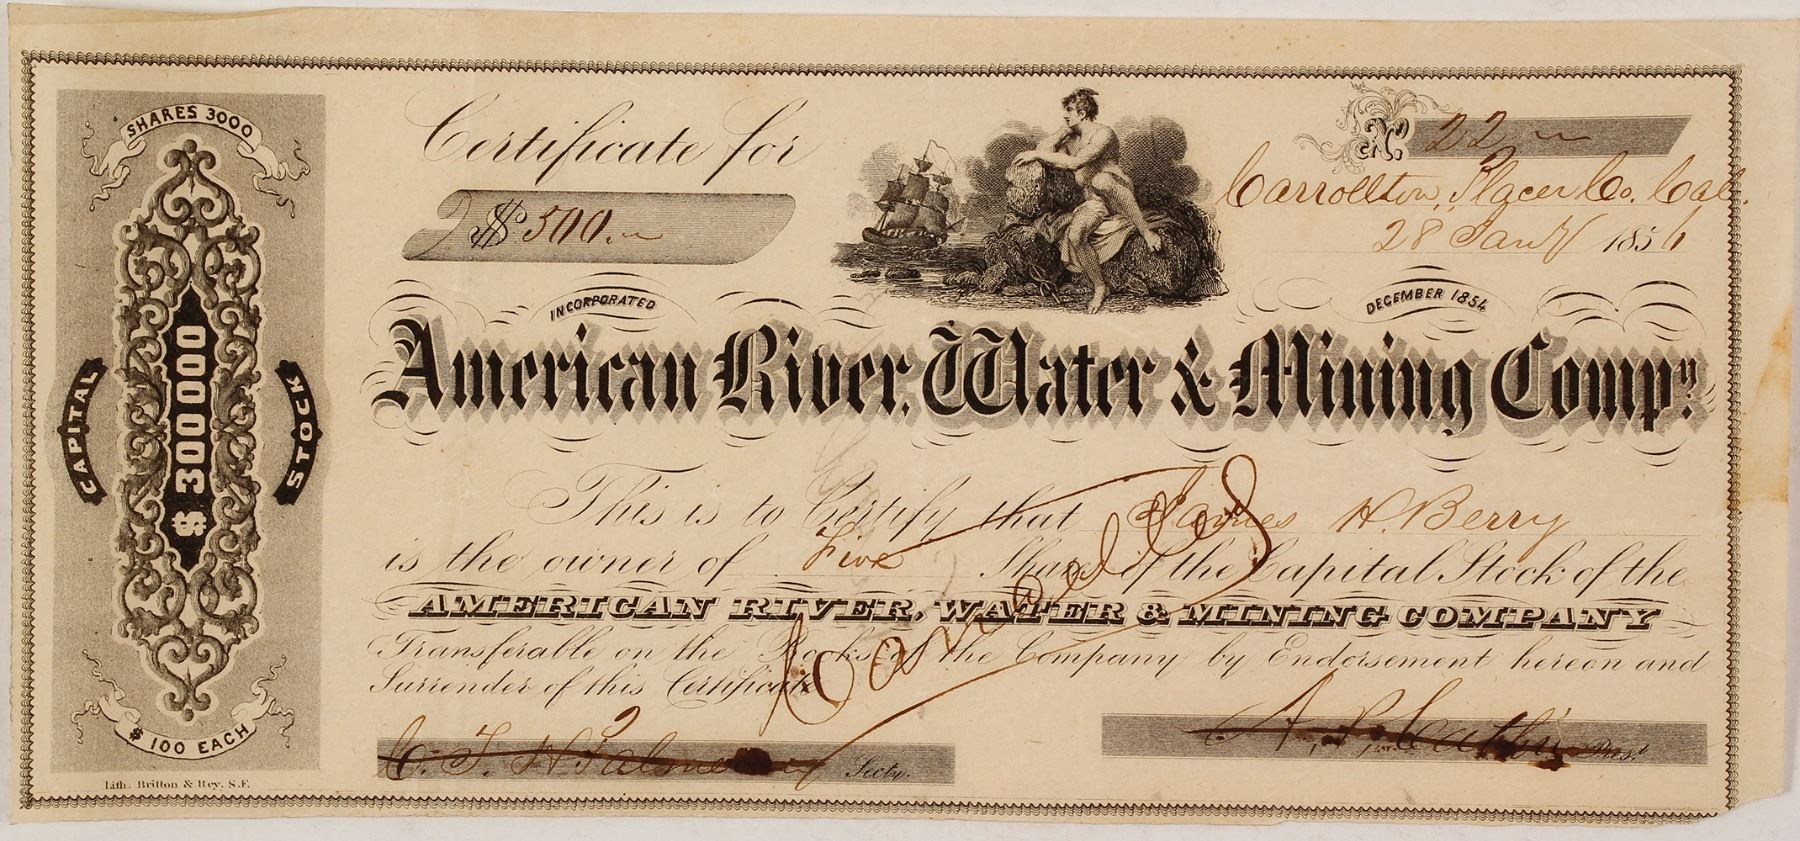 SHARES 3000
CAPITAL
$ 300 000
STOCK
$ 100 EACH
Lith. Britton & Rey, S.F.
Certificate for
$ 500.
No. 22
Carrollton, Placer Co. Cal.
28 Jany 1856
INCORPORATED
DECEMBER 1854
American River, Water & Mining Compy.
This is to Certify that James H. Berry
is the owner of Five Shares of the Capital Stock of the
AMERICAN RIVER, WATER & MINING COMPANY
Transferable on the Books of the Company by Endorsement hereon and
Surrender of this Certificate
Cancelled
C. T. H. Palmer Secty.
A. P. Prest.